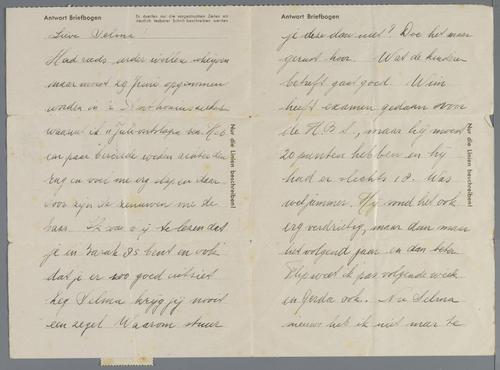 Antwort Briefbogen
Es dürfen nur die vorgedruckten Zeilen mit
deutlich lesbarer Schrift beschrieben werden
Lieve Selma!
Had reeds eerder willen schrijven
maar moest 29 Juni opgenomen
worden in 't
waaruit ik 11 Juli ontslagen ben. Heb
een paar beroerde weken achter den
rug en voel me erg slap en daar
voor zijn de zenuwen me de
baas. Ik was blij te lezen dat
je in Barak 85 bent en ook
dat je er zoo goed uitziet
Zeg Selma krijg jij nooit
een zegel Waarom stuur
Nur die Linien beschreiben!
Antwort Briefbogen
je deze dan niet? Doe het maar
gerust hoor. Wat de kinderen
betreft gaat goed. Wim
heeft examen gedaan voor
de H.B.S., maar hij moest
20 punten hebben en hij
had er slechts 18. Was
wel jammer. Hij vond het ook
erg verdrietig, maar dan maar
het volgend jaar en dan beter
Flip weet ik pas volgende week
en Gerda ook. Nu Selma
nieuws heb ik niet meer te
Nur die Linien beschreiben!